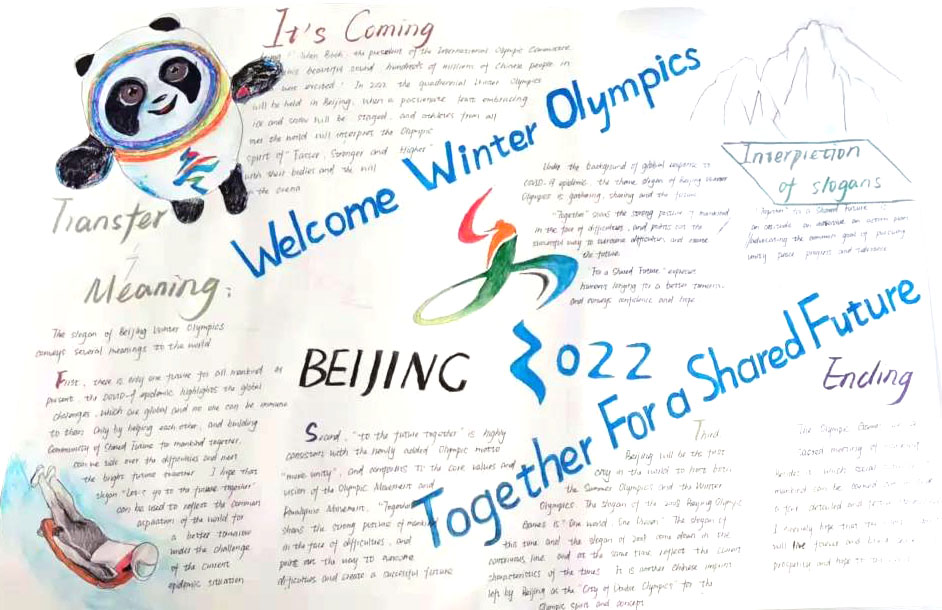 It's Coming
When Bach, the president of the International Olympic Committee
this beautiful sound hundreds of millions of Chinese people in
were excited! In 2022 the quadrennial Winter Olympics
will be held in Beijing. When a passionate feast embracing
ice and snow will be staged, and athletes from all
over the world will interpret the Olympic
spirit of "Faster, Stronger and Higher"
with their bodies and the will
in the arena
Welcome Winter Olympics
Transfer
Meaning:
The slogan of Beijing Winter Olympics
conveys several meanings to the world
First, there is only one future for all mankind. At
present the COVID-19 epidemic highlights the global
challenges, which are global and no one can be immune
to them. Only by helping each other, and building
Community of Shared Future for mankind together,
can we tide over the difficulties and meet
the bright future together. I hope that
slogan "Let's go to the future together"
can be used to reflect the common
aspiration of the world for
a better tomorrow
under the challenge
of the current
epidemic situation
Under the background of global response to
COVID-19 epidemic the theme slogan of Beijing Winter
Olympics is gathering, sharing and the future
"Together" shows the strong posture of mankind
in the face of difficulties, and points out the
successful way to overcome difficulties and create
the future.
"For a Shared Future" expresses
humans longing for a better tomorrow
and conveys confidence and hope
Interpretion
of slogans
"Together for a Shared Future" is
an attitude an initiative an action plan
advocating the common goal of pursuing
unity peace progress and tolerance
BEIJING 2022
Together For a Shared Future
Second, "to the future together" is highly
consistent with the newly added Olympic motto
"more unity", and conforms to the core values and
vision of the Olympic Movement and
Paralympic Movement. "Together"
shows the strong posture of mankind
in the face of difficulties, and
point out the way to overcome
difficulties and create a successful future
Third
Beijing will be the first
city in the world to host both
the Summer Olympics and the Winter
Olympics. The slogan of the 2008 Beijing Olympic
Games is "One world, One Dream". The slogan of
this time and the slogan of 2008 come down in the
continuous line, and at the same time reflect the current
characteristics of the times. It is another Chinese imprint
left by Beijing as the "City of Double Olympics" for the
Olympic spirit and concept
Ending
The Olympic Games is a
sacred meeting of mankind
besides, which social
mankind can be
a far
I sincerely hope that the
will live forever and
prosperity and hope to the